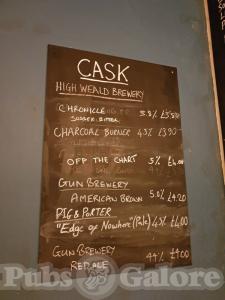 CASK
HIGH WEALD BREWERY
CHRONICLE
SUSSEX BITTER 3.8%
CHARCOAL BURNER 4.3% £3.90
OFF THE CHART 5% £4.00
GUN BREWERY
AMERICAN BROWN 5.0% £4.20
PIG & PORTER
"Edge of Nowhere" (Pale) 4.5% £4.00
GUN BREWERY
RED ALE £4.00
Pubs Galore